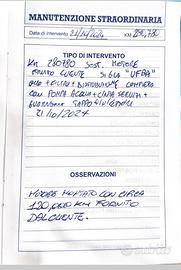 MANUTENZIONE STRAORDINARIA
Data di intervento 21/10/2024 KM 280,780
TIPO DI INTERVENTO
KM 280780 SOST MOTORE
FORNITO CLIENTE SIGLA "UFBA"
OLIO + FILTRI + DISTRIBUZIONE COMPLETO
CON POMPA ACQUA + CINGHIA SERVIZI +
GUARNIZIONE TAPPO
21/10/2024
OSSERVAZIONI
MOTORE MONTATO CON CIRCA
120,000 KM FORNITO
DAL CLIENTE.